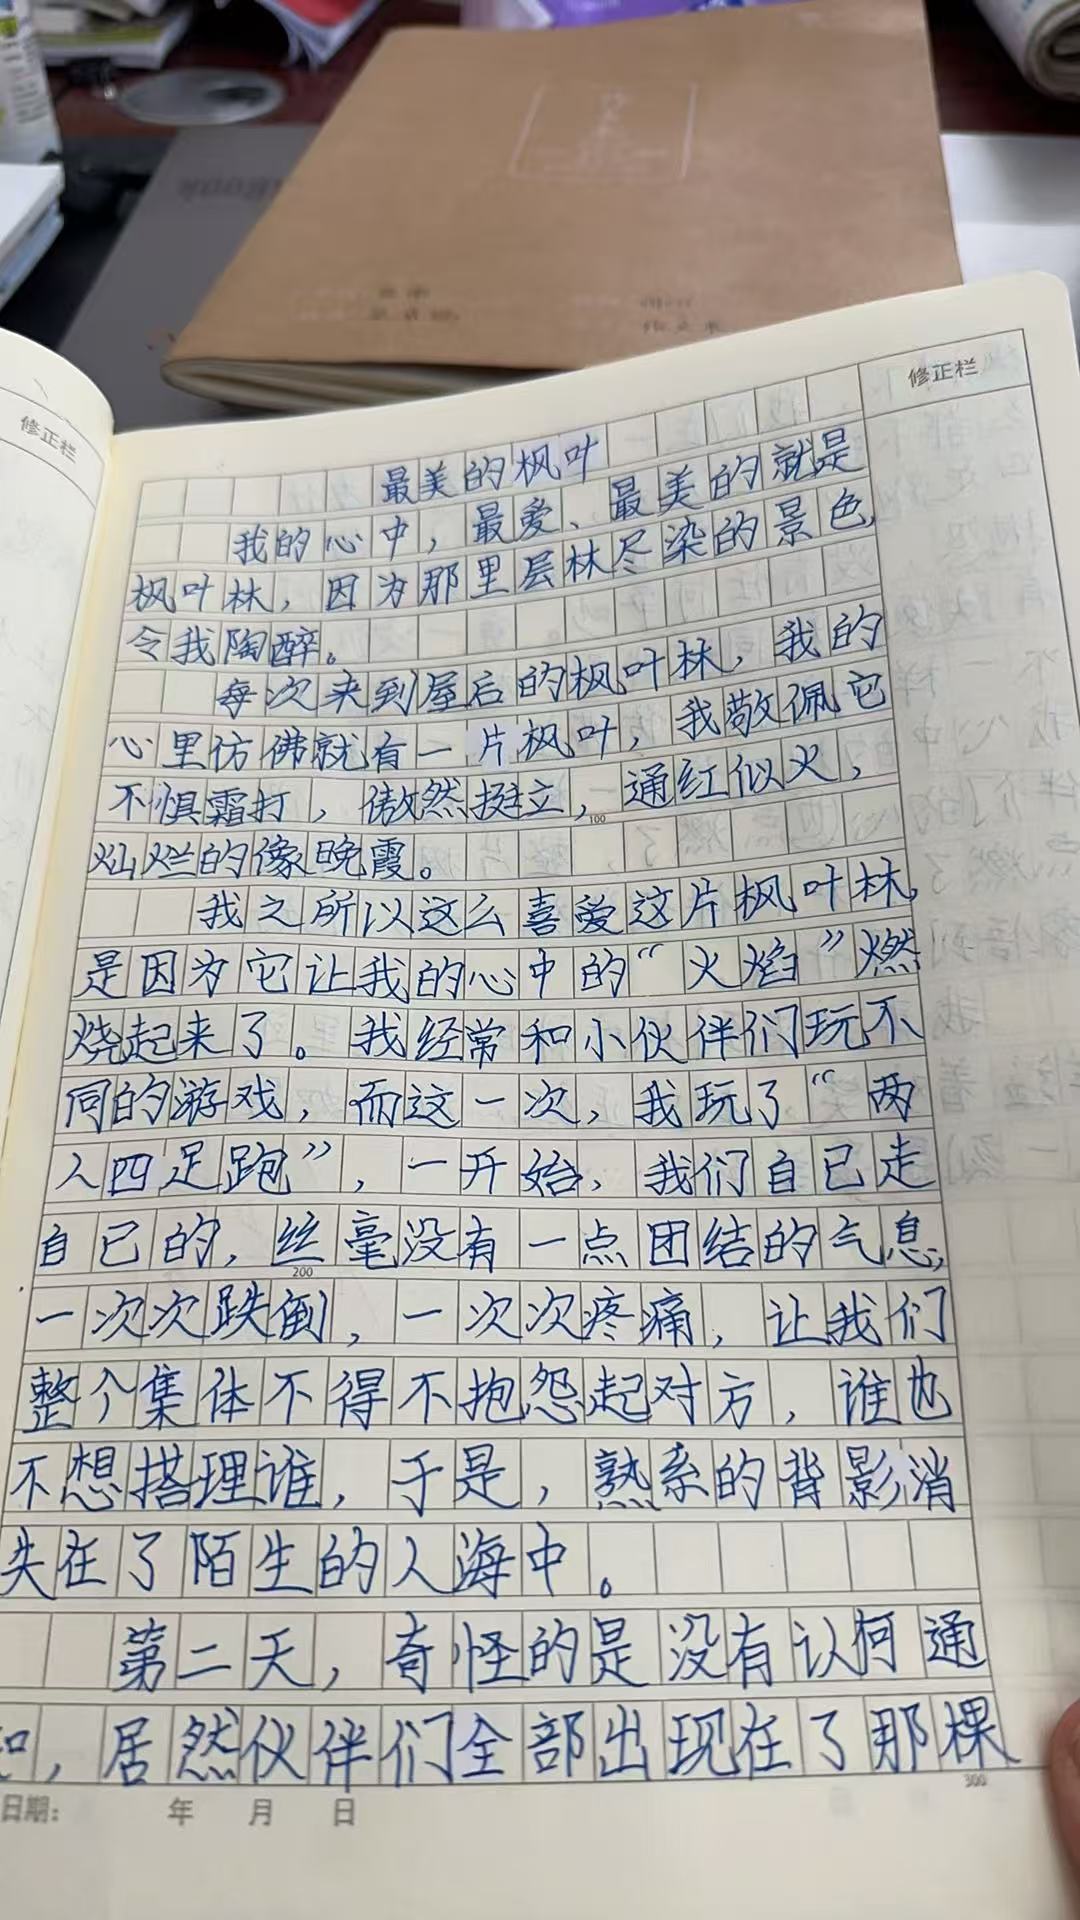 修正栏
修正栏
最美的枫叶
我的心中，最爱、最美的就是
枫叶林，因为那里层林尽染的景色，
令我陶醉。
每次来到屋后的枫叶林，我的
心里仿佛就有一片枫叶，我敬佩它
不惧霜打，傲然挺立，通红似火，
100
灿烂的像晚霞。
我之所以这么喜爱这片枫叶林，
是因为它让我的心中的“火焰”燃
烧起来了。我经常和小伙伴们玩不
同的游戏，而这一次，我玩了“两
人四足跑”，一开始，我们自己走
自己的，丝毫没有一点团结的气息，
200
一次次跌倒，一次次疼痛，让我们
整个集体不得不抱怨起对方，谁也
不想搭理谁，于是，熟系的背影消
失在了陌生的人海中。
第二天，奇怪的是没有认何通
知，居然伙伴们全部出现在了那棵
300
日期： 年 月 日